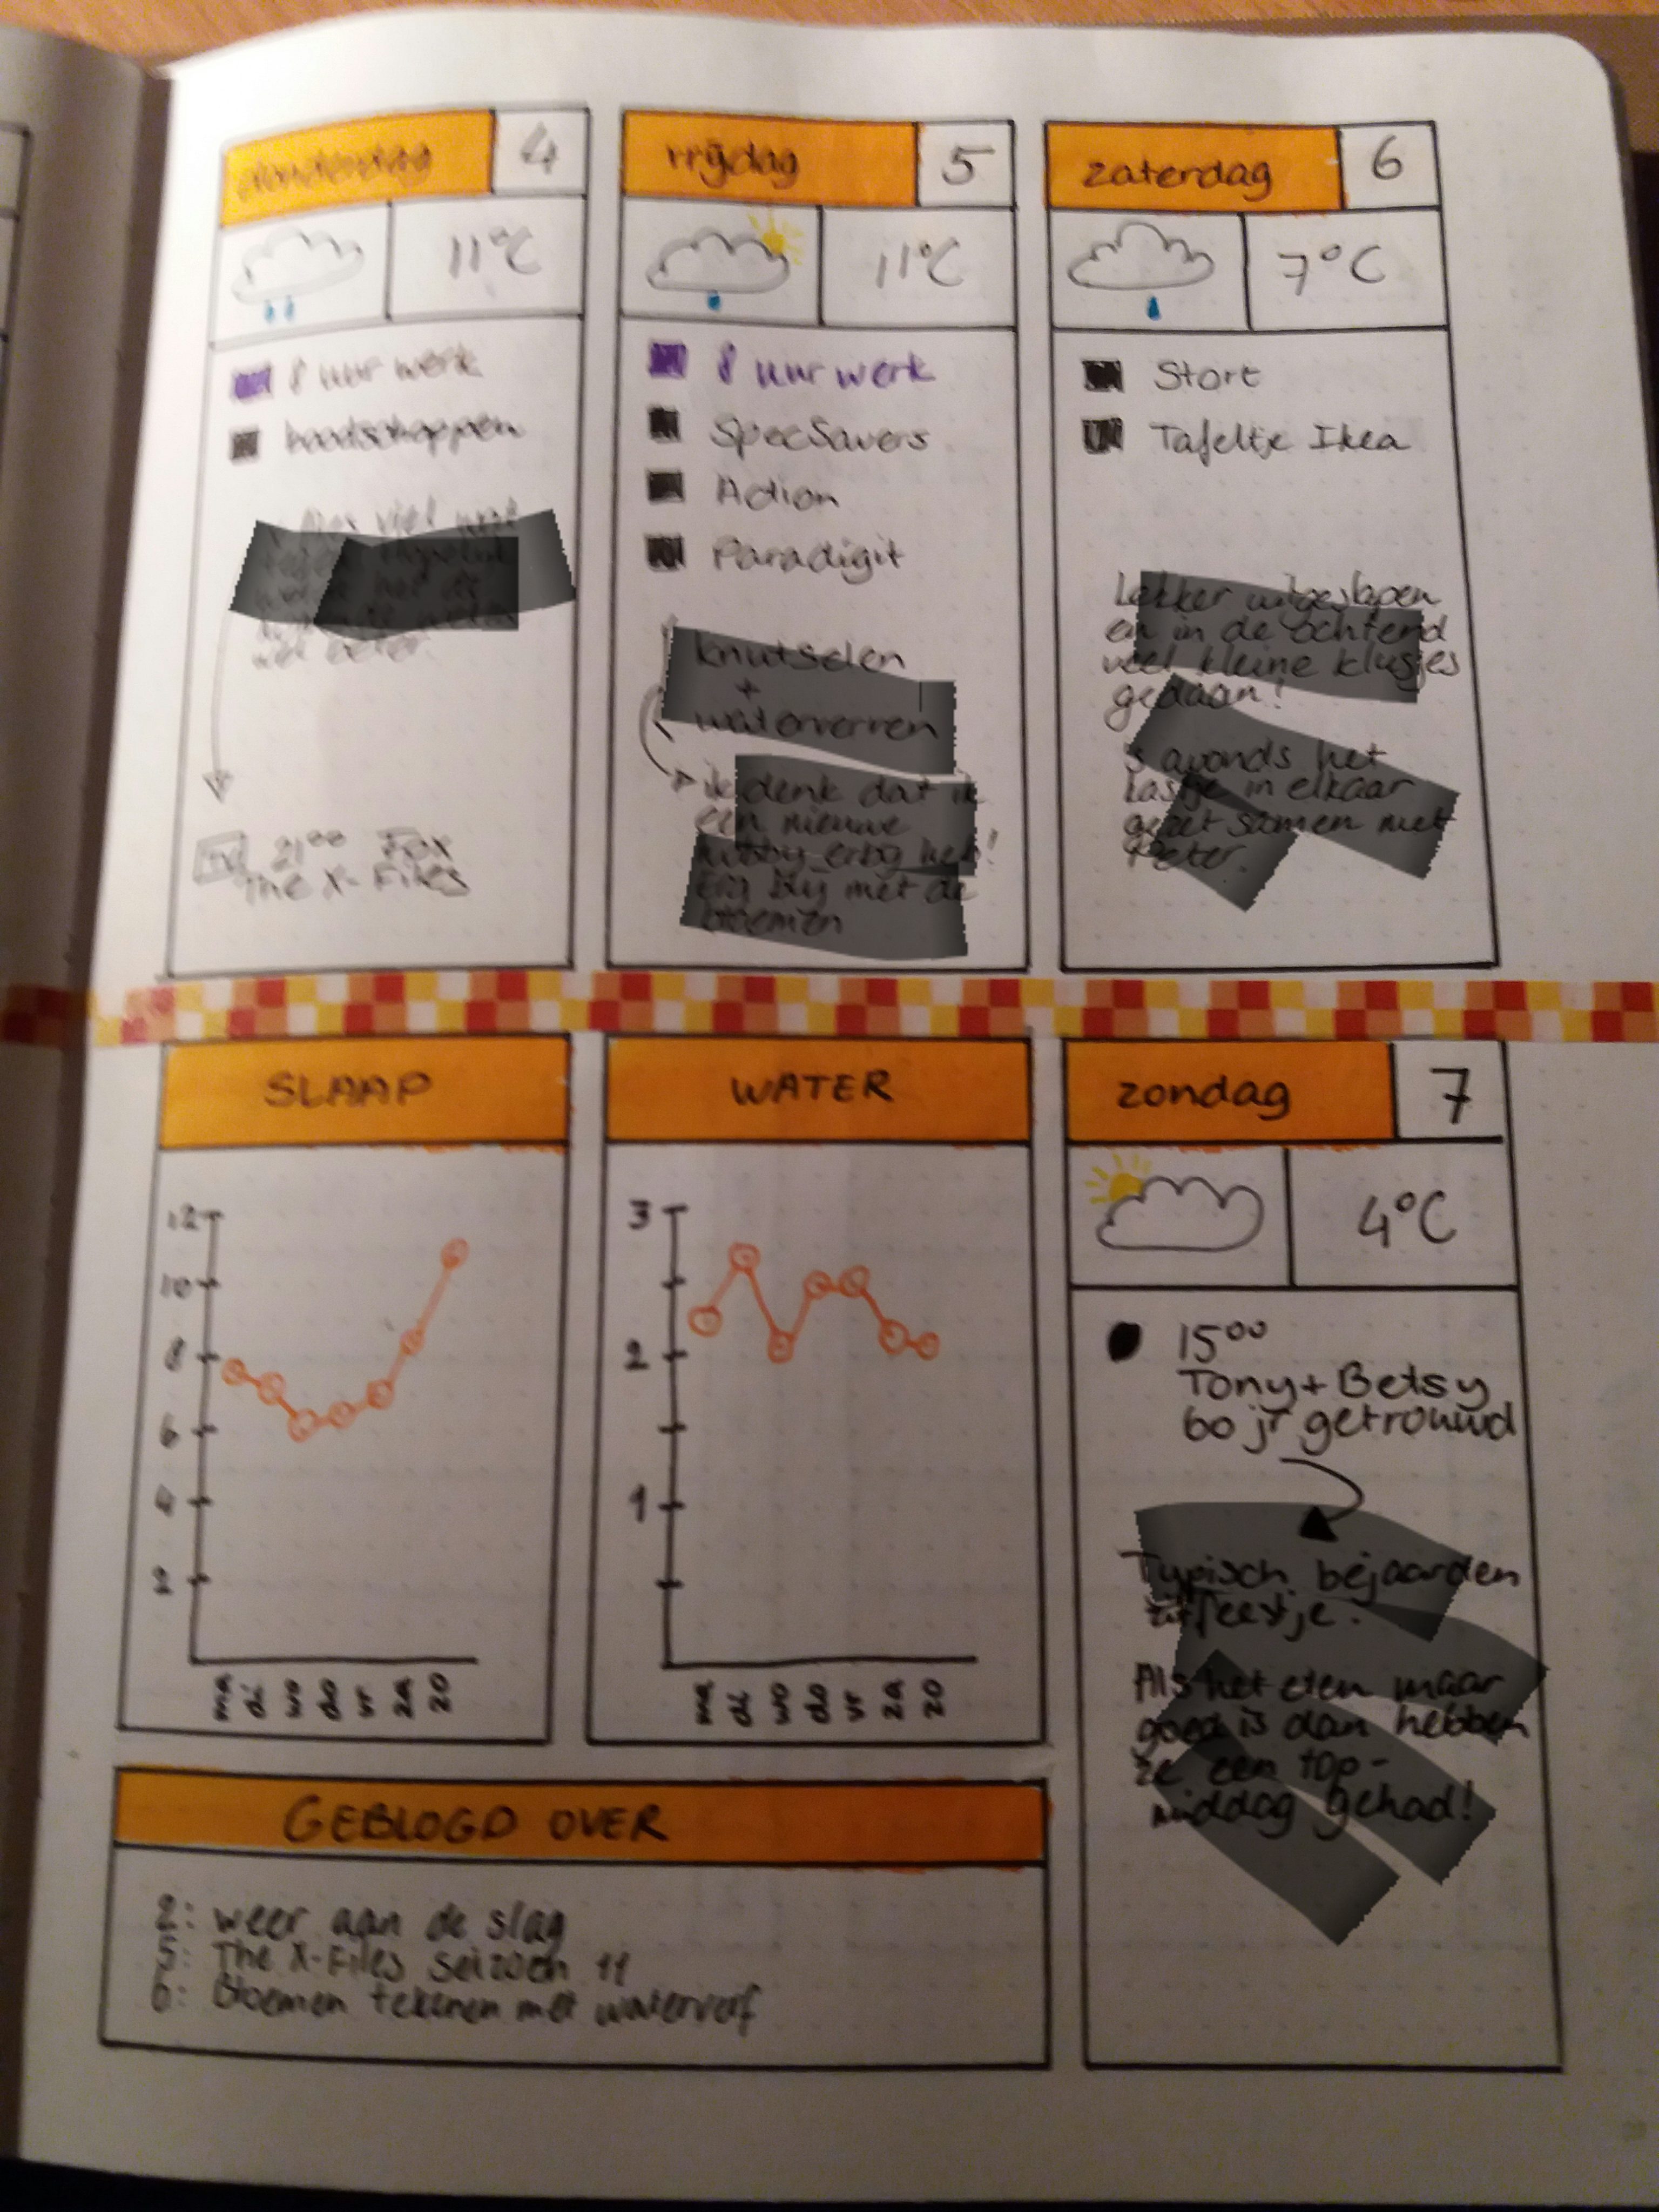 donderdag 4
11°C
8 uur werk
boodschappen
viel
wel beter.
21⁰⁰ Fox
The X-Files
vrijdag 5
11°C
8 uur werk
SpecSavers
Action
Paradigit
knutselen
+
waterverven
ik denk dat ik
een nieuwe
hobby erbij heb!
Erg blij met de
bloemen
zaterdag 6
7°C
Stort
Tafeltje Ikea
Lekker uitgeslapen
en in de ochtend
veel kleine klusjes
gedaan!
's avonds het
kastje in elkaar
gezet samen met
Peter.
SLAAP
12
10
8
6
4
2
ma di wo do vr za zo
WATER
3
2
1
ma di wo do vr za zo
zondag 7
4°C
15⁰⁰
Tony + Betsy
60 jr getrouwd
Typisch bejaarden
feestje.
Als het eten maar
goed is dan hebben
ze een top-
middag gehad!
GEBLOGD OVER
2: weer aan de slag
5: The X-Files seizoen 11
6: Bloemen tekenen met waterverf